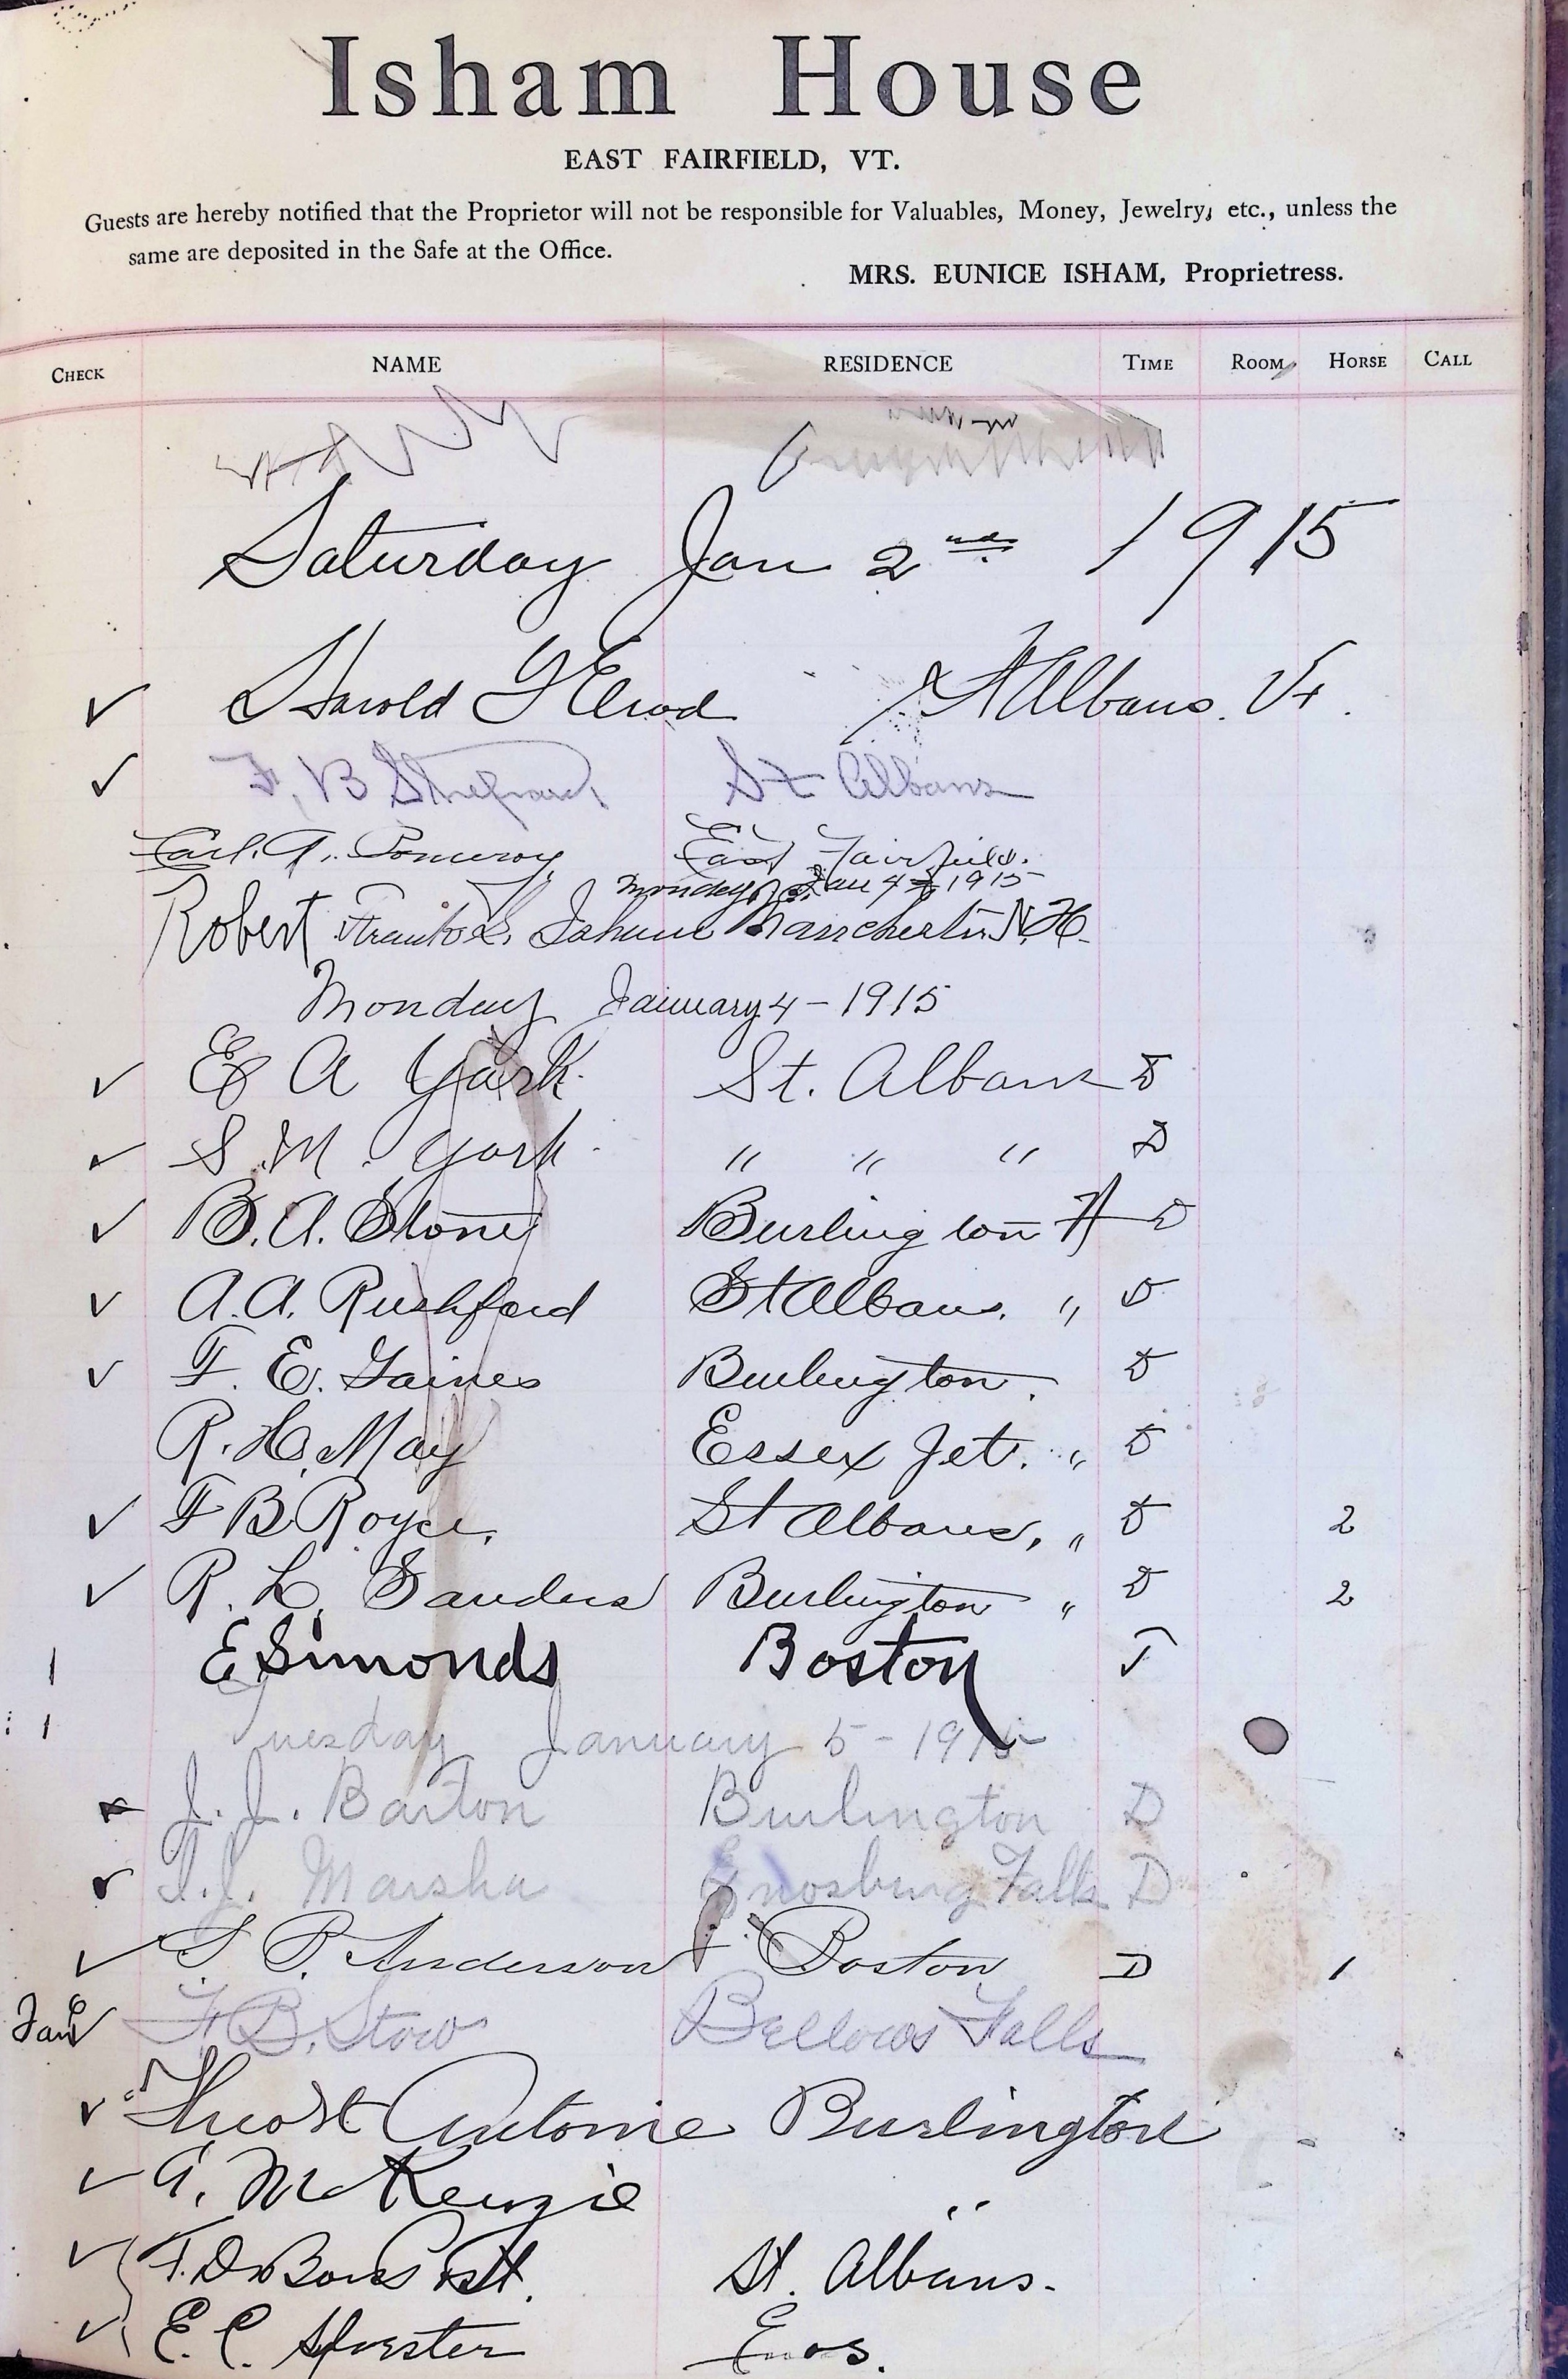 Isham House
EAST FAIRFIELD, VT.
Guests are hereby notified that the Proprietor will not be responsible for Valuables, Money, Jewelry, etc., unless the
same are deposited in the Safe at the Office.
MRS. EUNICE ISHAM, Proprietress.
CHECK NAME RESIDENCE TIME ROOM HORSE CALL
Saturday Jan 2nd 1915
✓ Harold G Elrod St Albans. Vt.
✓ F. B Shepard St Albans
Earl. A. Pomeroy East Fairfield.
Monday Jan 4th 1915
Robert Manchester N.H.
Monday January 4 - 1915
✓ E A York St. Albans D
✓ S. M. York " " " D
✓ B. A. Stone Burlington D
✓ A. A. Rushford St Albans. " D
✓ F. E. Gaines Burlington. D
R. H. May Essex Jct. " D
✓ F B Royce, St Albans, " D 2
✓ R. L. Sanders Burlington " D 2
1 E Simonds Boston
1 Tuesday January 5 - 1915
J. J. Barton Burlington D
✓ Marsha Enosburg Falls D
✓ S. P. Anderson Boston D 1
Jan 6 ✓ F. B. Stow Bellows Falls
✓ Antonie Burlington
✓ G. McKenzie "
✓ St. Albans.
✓ E. C. Enos.